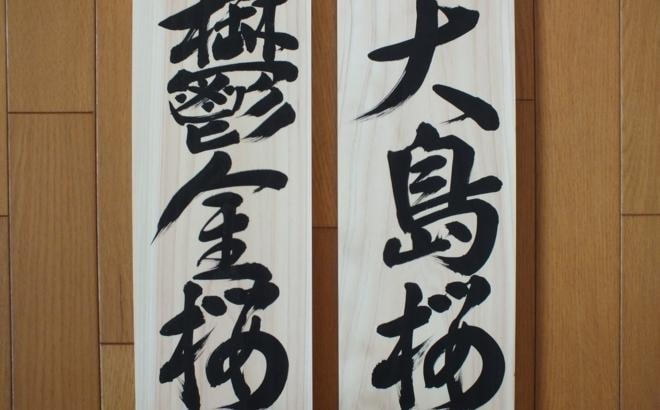 大島桜
鬱金桜